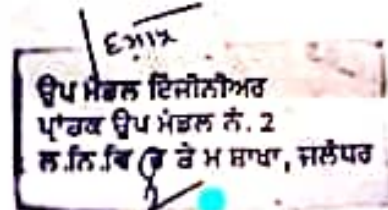 ਉਪ ਮੰਡਲ ਇੰਜੀਨੀਅਰ
ਪ੍ਰਾਂਤਕ ਉਪ ਮੰਡਲ ਨੰ. 2
ਲ.ਨਿ.ਵਿ ਤੇ ਮ ਸ਼ਾਖਾ, ਜਲੰਧਰ